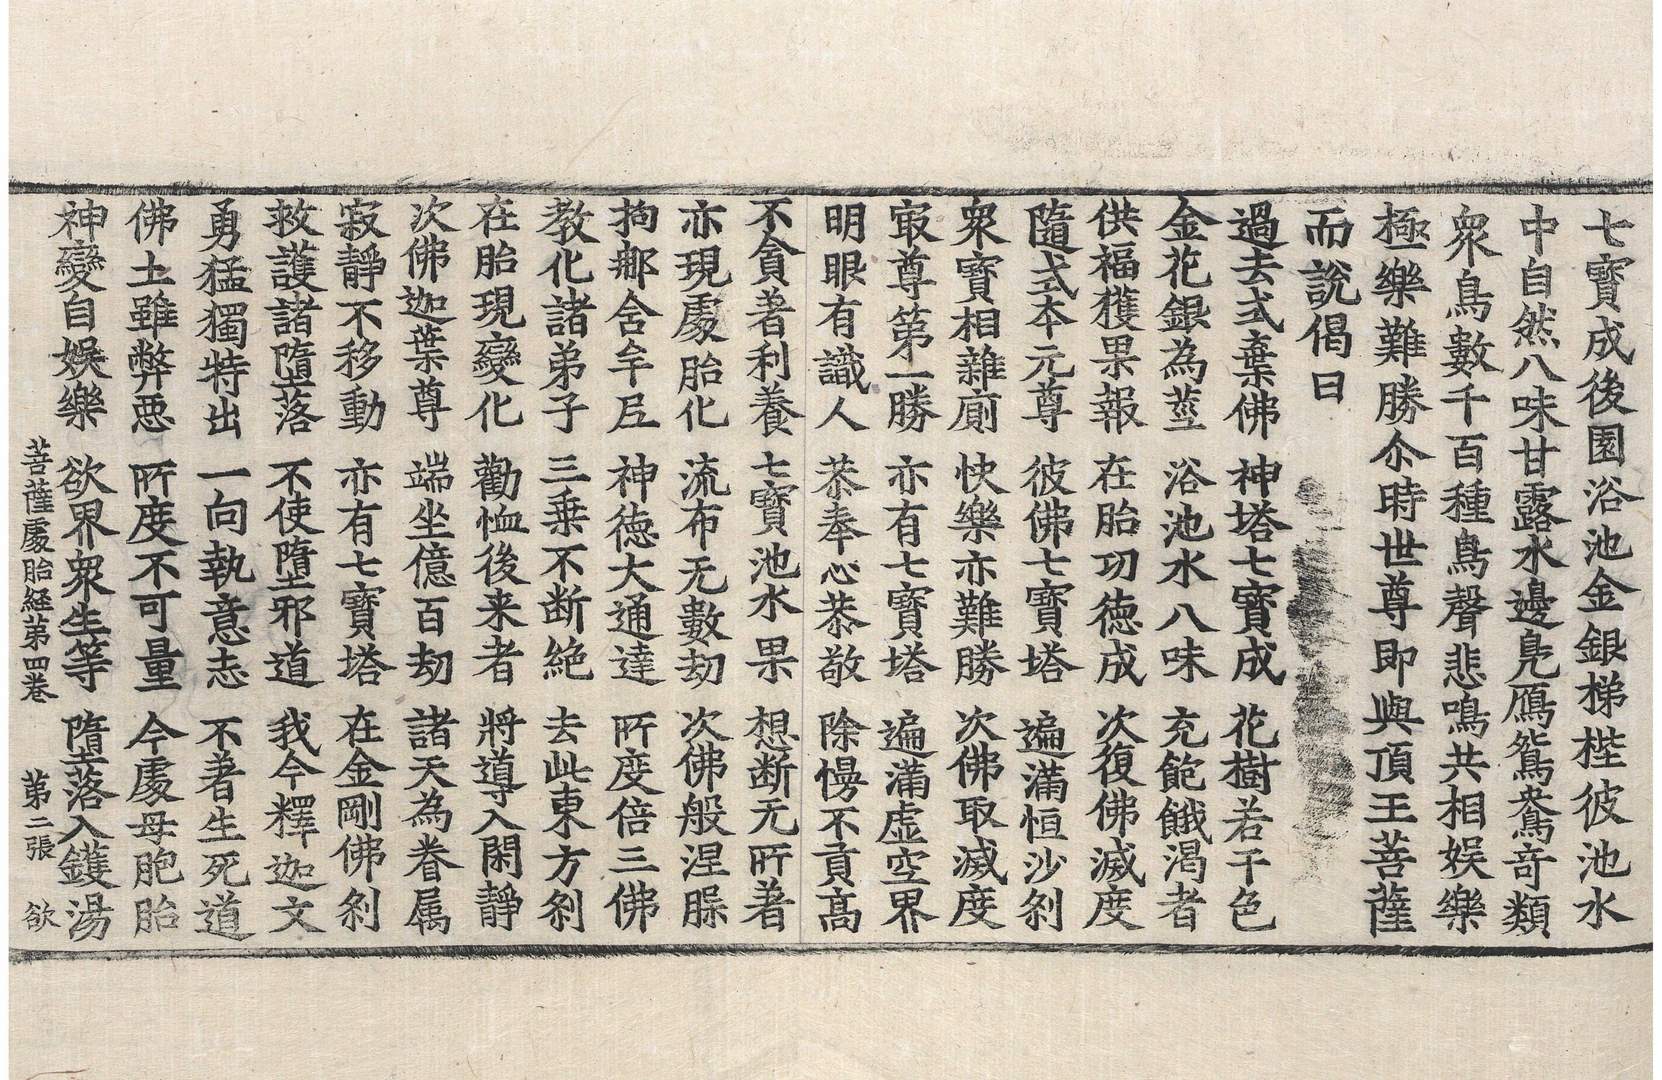 七寶成後園浴池金銀梯桂彼池水
中自然八味甘露水邊鳬鴈鴛鴦奇類
衆鳥數千百種鳥聲悲鳴共相娛樂
極樂難勝尒時世尊即與頂王菩薩
而說偈曰
過去式棄佛 神塔七寶成 花樹若干色
金花銀為莖 浴池水八味 充飽餓渴者
供福獲果報 在胎功徳成 次復佛滅度
隨式本元尊 彼佛七寶塔 遍滿恒沙刹
衆寶相雜廁 快樂亦難勝 次佛取滅度
冣尊第一勝 亦有七寶塔 遍滿虚空界
明眼有識人 恭奉心恭敬 除慢不貢高
不貪著利養 七寶池水果 想断无所著
亦現處胎化 流布无數劫 次佛般涅脲
拘那含牟尼 神徳大通達 所度倍三佛
教化諸弟子 三乗不断絶 去此東方刹
在胎現變化 勸恤後来者 將導入閑靜
次佛迦葉尊 端坐億百劫 諸天為眷属
寂靜不移動 亦有七寶塔 在金剛佛刹
救護諸墮落 不使墮邪道 我今釋迦文
勇猛獨特出 一向執意志 不著生死道
佛土雖弊恶 所度不可量 今處母胞胎
神變自娛樂 欲界衆生等 墮落入鑊湯
菩薩處胎経第四巻 第二張 欲